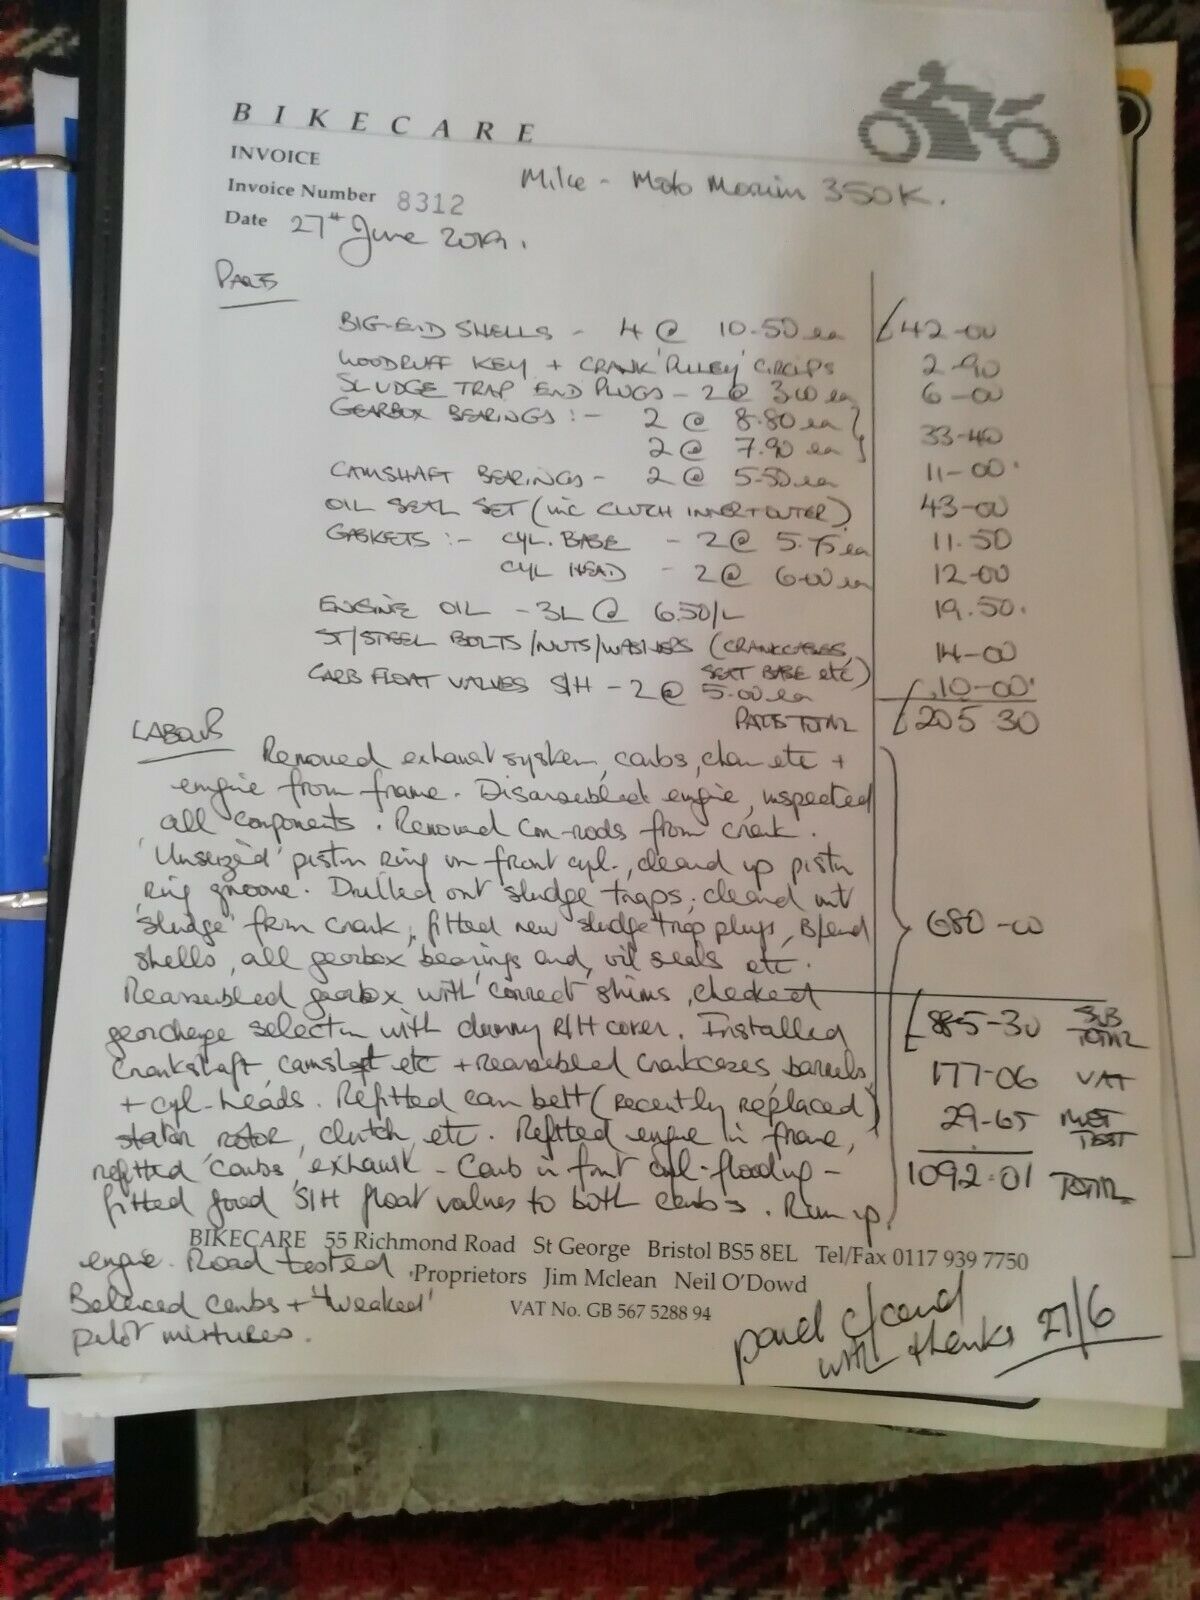 BIKECARE
INVOICE
Mike - Moto Morini 350K.
Invoice Number 8312
Date 27th June 2019.
PARTS
BIG-END SHELLS - 4 @ 10.50 ea £42-00
WOODRUFF KEY + CRANK 'PULLEY' CIRCLIPS 2-90
SLUDGE TRAP END PLUGS - 2 @ 3.00 ea 6-00
GEARBOX BEARINGS :- 2 @ 8.80 ea }
2 @ 7.90 ea } 33-40
CAMSHAFT BEARINGS - 2 @ 5.50 ea 11-00
OIL SEAL SET (inc CLUTCH INNER+OUTER) 43-00
GASKETS :- CYL. BASE - 2 @ 5.75 ea 11.50
CYL HEAD - 2 @ 6.00 ea 12-00
ENGINE OIL - 3L @ 6.50/L 19.50
ST/STEEL BOLTS/NUTS/WASHERS (CRANKCASES, 14-00
SEAT BASE etc)
CARB FLOAT VALVES S/H - 2 @ 5.00 ea 10-00
PARTS TOTAL £205 30
LABOUR
Removed exhaust system, carbs, chain etc +
engine from frame. Disassembled engine, inspected
all components. Removed con-rods from crank.
'Unseized' piston ring on front cyl., cleaned up piston
ring groove. Drilled out sludge traps, cleaned out
'sludge' from crank, fitted new sludge trap plugs, B/end 680-00
shells, all gearbox bearings and, oil seals etc.
Reassembled gearbox with correct shims, checked
gearchange selection with dummy R/H cover. Installed £885-30 SUB TOTAL
crankshaft, camshaft etc + reassembled crankcases barrels 177-06 VAT
+ cyl-heads. Refitted cam belt (recently replaced)
stator rotor, clutch, etc. Refitted engine in frame, 29-65 MOT TEST
refitted carbs, exhaust - Carb in front cyl-flooding - 1092.01 TOTAL
fitted good S/H float valves to both carbs. Run up
BIKECARE 55 Richmond Road St George Bristol BS5 8EL Tel/Fax 0117 939 7750
engine. Road tested
Proprietors Jim Mclean Neil O'Dowd
Balanced carbs + 'tweaked'
VAT No. GB 567 5288 94
pilot mixtures.
paid c/card
with thanks 27/6